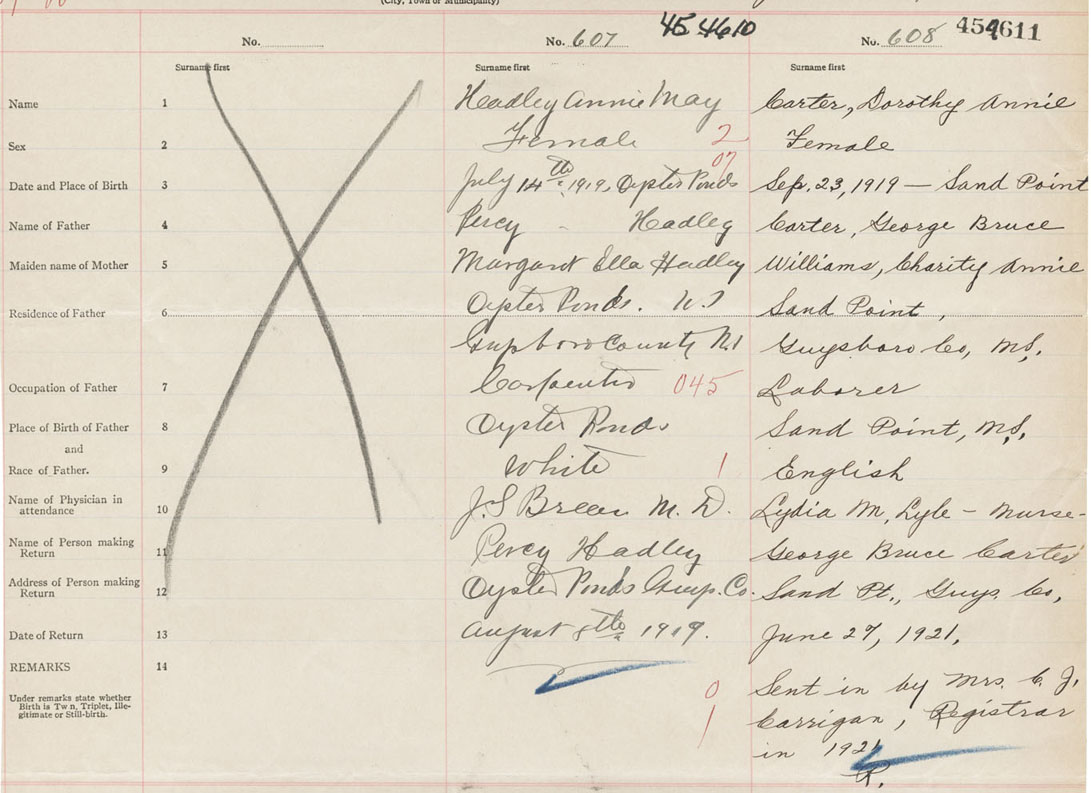 (City, Town or Municipality)
No.
No. 607
454610
No. 608
454611
Surname first
Surname first
Surname first
Name 1 Headley Annie May Carter, Dorothy Annie
Sex 2 Female 2 Female
07
Date and Place of Birth 3 July 14th 1919, Oyster Ponds Sep. 23, 1919 — Sand Point
Name of Father 4 Percy - Hadley Carter, George Bruce
Maiden name of Mother 5 Margaret Ella Hadley Williams, Charity Annie
Residence of Father 6 Oyster Ponds. N.S Sand Point,
County N.S Guysboro Co, N.S.
Occupation of Father 7 Carpenter 045 Laborer
Place of Birth of Father 8 Oyster Ponds Sand Point, N.S.
and
Race of Father. 9 White 1 English
Name of Physician in
attendance 10 J.S M.D. Lydia M. Lyle - Nurse-
Name of Person making
Return 11 Percy Hadley George Bruce Carter
Address of Person making
Return 12 Oyster Ponds Co. Sand Pt., Guys. Co,
Date of Return 13 August 8th 1919. June 27, 1921.
REMARKS 14
Under remarks state whether
Birth is Twin, Triplet, Ille-
gitimate or Still-birth.
0
1
Sent in by Mrs. C. J.
Carrigan, Registrar
in 1921
R.